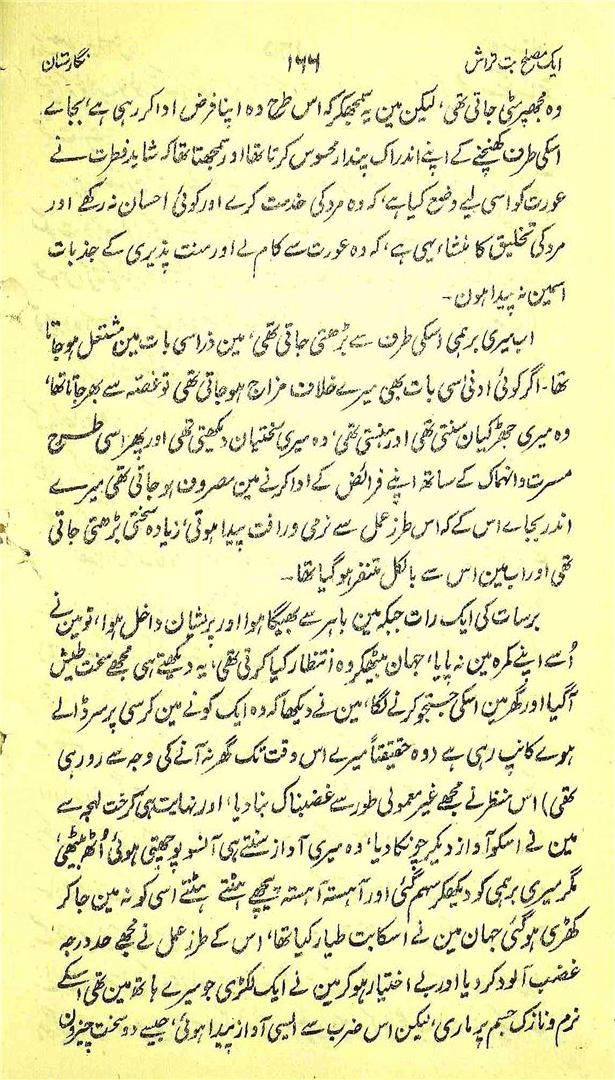 ایک مصلح بت تراش ۱۶۶ نگارستان
وہ مجھپر مٹی جاتی تھی، لیکن مین یہ سمجھکر کہ اس طرح وہ اپنا فرض ادا کر رہی ہے، بجاے
اسکی طرف کھنچنے کے اپنے اندر اک پندار محسوس کرتا تھا اور سمجھتا تھا کہ شاید فطرت نے
عورت کو اسی لیے وضع کیا ہے، کہ وہ مرد کی خدمت کرے اور کوئی احسان نہ رکھے اور
مرد کی تخلیق کا منشاء یہی ہے، کہ وہ عورت سے کام لے اور منت پذیری کے جذبات
اسمین نہ پیدا ہون۔
اب میری برہمی اسکی طرف سے بڑھتی جاتی تھی، مین ذرا سی بات مین مشتعل ہو جاتا
تھا۔ اگر کوئی ادنیٰ سی بات بھی میرے خلاف مزاج ہو جاتی تھی تو غصّہ سے بھر جاتا تھا،
وہ میری جھڑکیان سنتی تھی اور ہنستی تھی، وہ میری سختیان دیکھتی تھی اور پھر اسی طرح
مسرت و انہماک کے ساتھ اپنے فرائض کے ادا کرنے مین مصروف ہو جاتی تھی میرے
اندر بجاے اس کے کہ اس طرز عمل سے نرمی و رافت پیدا ہوتی، زیادہ سختی بڑھتی جاتی
تھی اور اب مین اس سے بالکل متنفر ہو گیا تھا۔
برسات کی ایک رات جبکہ مین باہر سے بھیگا ہوا اور پریشان داخل ہوا، تو مین نے
اُسے اپنے کمرہ مین نہ پایا، جہان بیٹھکر وہ انتظار کیا کرتی تھی، یہ دیکھتے ہی مجھے سخت طیش
آگیا اور گھر مین اسکی جستجو کرنے لگا، مین نے دیکھا کہ وہ ایک کونے مین کرسی پر سر ڈالے
ہوے کانپ رہی ہے (وہ حقیقتاً میرے اس وقت تک گھر نہ آنے کی وجہ سے رو رہی
تھی) اس منظر نے مجھے غیر معمولی طور سے غضبناک بنا دیا، اور نہایت ہی کرخت لہجہ سے
مین نے اسکو آواز دیکر چونکا دیا، وہ میری آواز سنتے ہی آنسو پوچھتی ہوئی اُٹھ بیٹھی،
مگر میری برہمی کو دیکھکر سہم گئی اور آہستہ آہستہ پیچھے ہٹتے ہٹتے اسی کونہ مین جا کر
کھڑی ہو گئی جہان مین نے اسکا بت طیار کیا تھا، اس کے طرز عمل نے مجھے حد درجہ
غضب آلود کر دیا اور بے اختیار ہو کر مین نے ایک لکڑی جو میرے ہاتھ مین تھی اسکے
نرم و نازک جسم پر ماری، لیکن اس ضرب سے ایسی آواز پیدا ہوئی، جیسے دو سخت چیزون